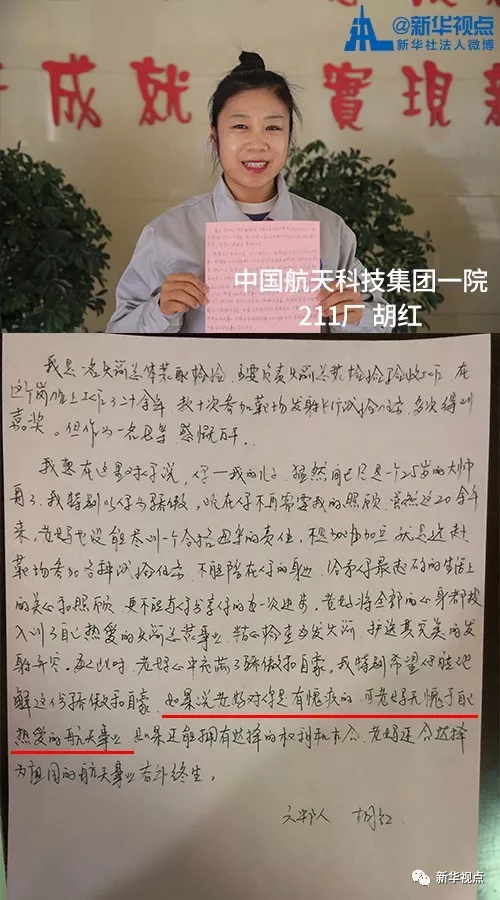 @新华视点
新华社法人微博
成就 實現新
中国航天科技集团一院
211厂 胡红
我是一名火箭总体装配检验，主要负责火箭总装检验验收工作，在
这个岗位上工作了二十余年，数十次参加靶场发射飞行试验任务，多次得到
嘉奖。但作为一名母亲 感慨万千。
我想在这里对 说，仔一我的儿子，猛然间已是一个25岁的大帅
哥了。我特别以仔为骄傲，现在仔不再需要我的照顾，虽然这20余年
来，老妈也没能尽到一个合格母亲的责任，不是加班加点 就是远赴
靶场参加各种试验任务，不能陪在仔的身边，给予仔最起码的生活上
的关心和照顾，更不能与仔分享仔的每一次进步。老妈将全部的心身都投
入到了自己热爱的火箭总装事业，精心检查每发火箭，护送其完美的发
射升空。每此时 老妈心中充满了骄傲和自豪。我特别希望仔能理
解这份骄傲和自豪，如果说老妈对仔是有愧疚的，可老妈无愧于自己
热爱的航天事业，如果还能拥有选择的权利和机会，老妈还会选择
为祖国的航天事业奋斗终生。
胡红
新华视点